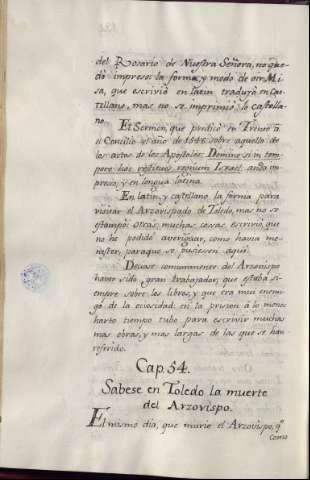 del Rosario de Nuestra Señora, no que-
dó impreso: la forma, y modo de oir Mi-
sa, que escrivió en latin traduxo en Cas-
tellano, mas no se imprimió lo castella-
no.
El Sermon, que predicó en Trento á
el Concilio el año de 1546 sobre aquello de
los actos de los Apostoles: Domine si in tem-
pore hoc restitues regnum Israel, anda im-
preso, y en lengua latina.
En latin, y castellano la forma para
visitar el Arzovispado de Toledo, mas no se
estampó: otras muchas cosas escrivió, que
no he podido averiguar, como havia me-
nester, para que se pusiesen aqui.
Decese communmente del Arzovispo
haver sido gran trabajador, que estaba si-
empre sobre los libros, y que era muy enemi-
go de la ociosidad: en la prision á lo menos
harto tiempo tubo para escrivir muchas
mas obras, y mas largas de las que se han
referido.
Cap. 54.
Sabese en Toledo la muerte
del Arzovispo.
El mismo dia, que murio el Arzovispo, q.e
como